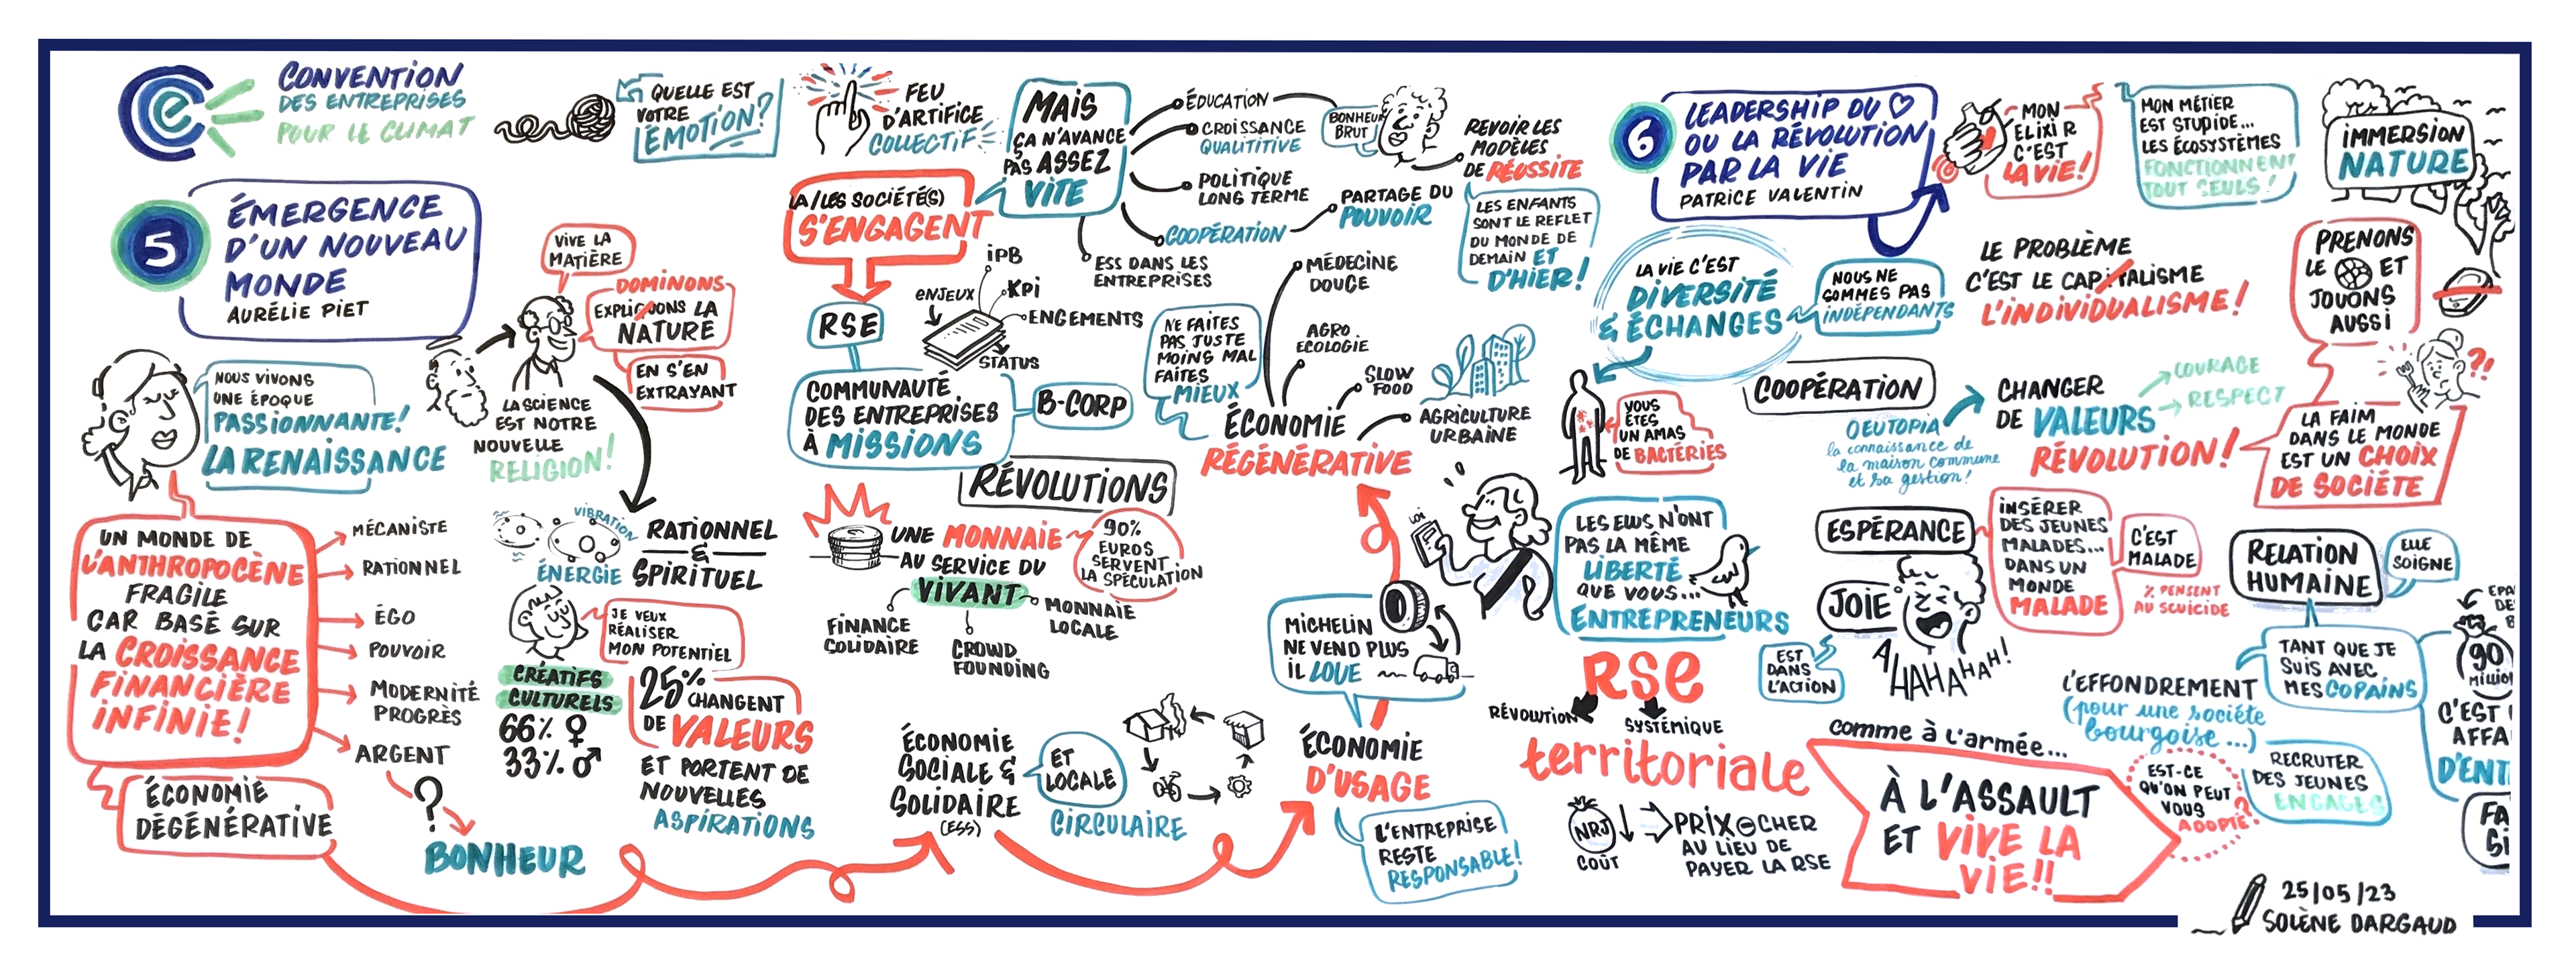 CONVENTION
DES ENTREPRISES
POUR LE CLIMAT
QUELLE EST
VOTRE
ÉMOTION?
FEU
D'ARTIFICE
COLLECTIF
5
ÉMERGENCE
D'UN NOUVEAU
MONDE
AURÉLIE PIET
NOUS VIVONS
UNE ÉPOQUE
PASSIONNANTE!
LA RENAISSANCE
UN MONDE DE
L'ANTHROPOCÈNE
FRAGILE
CAR BASÉ SUR
LA CROISSANCE
FINANCIÈRE
INFINIE!
MÉCANISTE
RATIONNEL
ÉGO
POUVOIR
MODERNITÉ
PROGRÈS
ARGENT
?
BONHEUR
ÉCONOMIE
DÉGÉNÉRATIVE
VIVE LA
MATIÈRE
DOMINONS
EXPLIQUONS LA
NATURE
EN S'EN
EXTRAYANT
LA SCIENCE
EST NOTRE
NOUVELLE
RELIGION!
VIBRATION
ÉNERGIE
RATIONNEL
&
SPIRITUEL
JE VEUX
RÉALISER
MON POTENTIEL
CRÉATIFS
CULTURELS
66% ♀
33% ♂
25%
CHANGENT
DE VALEURS
ET PORTENT DE
NOUVELLES
ASPIRATIONS
LA/LES SOCIÉTÉ(S)
S'ENGAGENT
MAIS
ÇA N'AVANCE
PAS ASSEZ
VITE
ÉDUCATION
CROISSANCE
QUALITITIVE
POLITIQUE
LONG TERME
COOPÉRATION
PARTAGE DU
POUVOIR
ESS DANS LES
ENTREPRISES
BONHEUR
BRUT
REVOIR LES
MODÈLES
DE RÉUSSITE
LES ENFANTS
SONT LE REFLET
DU MONDE DE
DEMAIN ET
D'HIER!
RSE
ENJEUX
IPB
KPI
ENGEMENTS
STATUS
COMMUNAUTÉ
DES ENTREPRISES
À MISSIONS
B-CORP
RÉVOLUTIONS
UNE MONNAIE
AU SERVICE DU
VIVANT
90%
EUROS
SERVENT
LA SPÉCULATION
FINANCE
SOLIDAIRE
CROWD
FOUNDING
MONNAIE
LOCALE
ÉCONOMIE
SOCIALE &
SOLIDAIRE
(ESS)
ET
LOCALE
CIRCULAIRE
NE FAITES
PAS JUSTE
MOINS MAL
FAITES
MIEUX
ÉCONOMIE
RÉGÉNÉRATIVE
MÉDECINE
DOUCE
AGRO
ECOLOGIE
SLOW
FOOD
AGRICULTURE
URBAINE
MICHELIN
NE VEND PLUS
IL LOUE
ÉCONOMIE
D'USAGE
L'ENTREPRISE
RESTE
RESPONSABLE!
6
LEADERSHIP DU ♡
OU LA RÉVOLUTION
PAR LA VIE
PATRICE VALENTIN
MON
ELIXIR
C'EST
LA VIE!
MON MÉTIER
EST STUPIDE...
LES ÉCOSYSTÈMES
FONCTIONNENT
TOUT SEULS!
IMMERSION
NATURE
LA VIE C'EST
DIVERSITÉ
& ÉCHANGES
NOUS NE
SOMMES PAS
INDÉPENDANTS
LE PROBLÈME
C'EST LE CAPITALISME
L'INDIVIDUALISME!
PRENONS
LE ET
JOUONS
AUSSI
VOUS
ÊTES
UN AMAS
DE BACTÉRIES
COOPÉRATION
OEUTOPIA
la connaissance de
la maison commune
et sa gestion!
CHANGER
DE VALEURS
RÉVOLUTION!
COURAGE
RESPECT
?!
LA FAIM
DANS LE MONDE
EST UN CHOIX
DE SOCIÉTE
LOI
LES ELUS N'ONT
PAS LA MÊME
LIBERTÉ
QUE VOUS...
ENTREPRENEURS
RSE
RÉVOLUTION
SYSTÉMIQUE
territoriale
NRJ
COÛT
PRIX CHER
AU LIEU DE
PAYER LA RSE
ESPÉRANCE
JOIE
EST
DANS
L'ACTION
AHAHAHAH!
INSÉRER
DES JEUNES
MALADES...
DANS UN
MONDE
MALADE
C'EST
MALADE
% PENSENT
AU SCUICIDE
RELATION
HUMAINE
ELLE
SOIGNE
TANT QUE JE
SUIS AVEC
MES COPAINS
L'EFFONDREMENT
(pour une société
bourgoise...)
comme à l'armée...
À L'ASSAULT
ET VIVE LA
VIE!!
EST-CE
QU'ON PEUT
VOUS
ADOPTÉ?
RECRUTER
DES JEUNES
ENGAGÉS
90
C'EST
AFFA
D'ENT
FA
Si
25/05/23
SOLÈNE DARGAUD